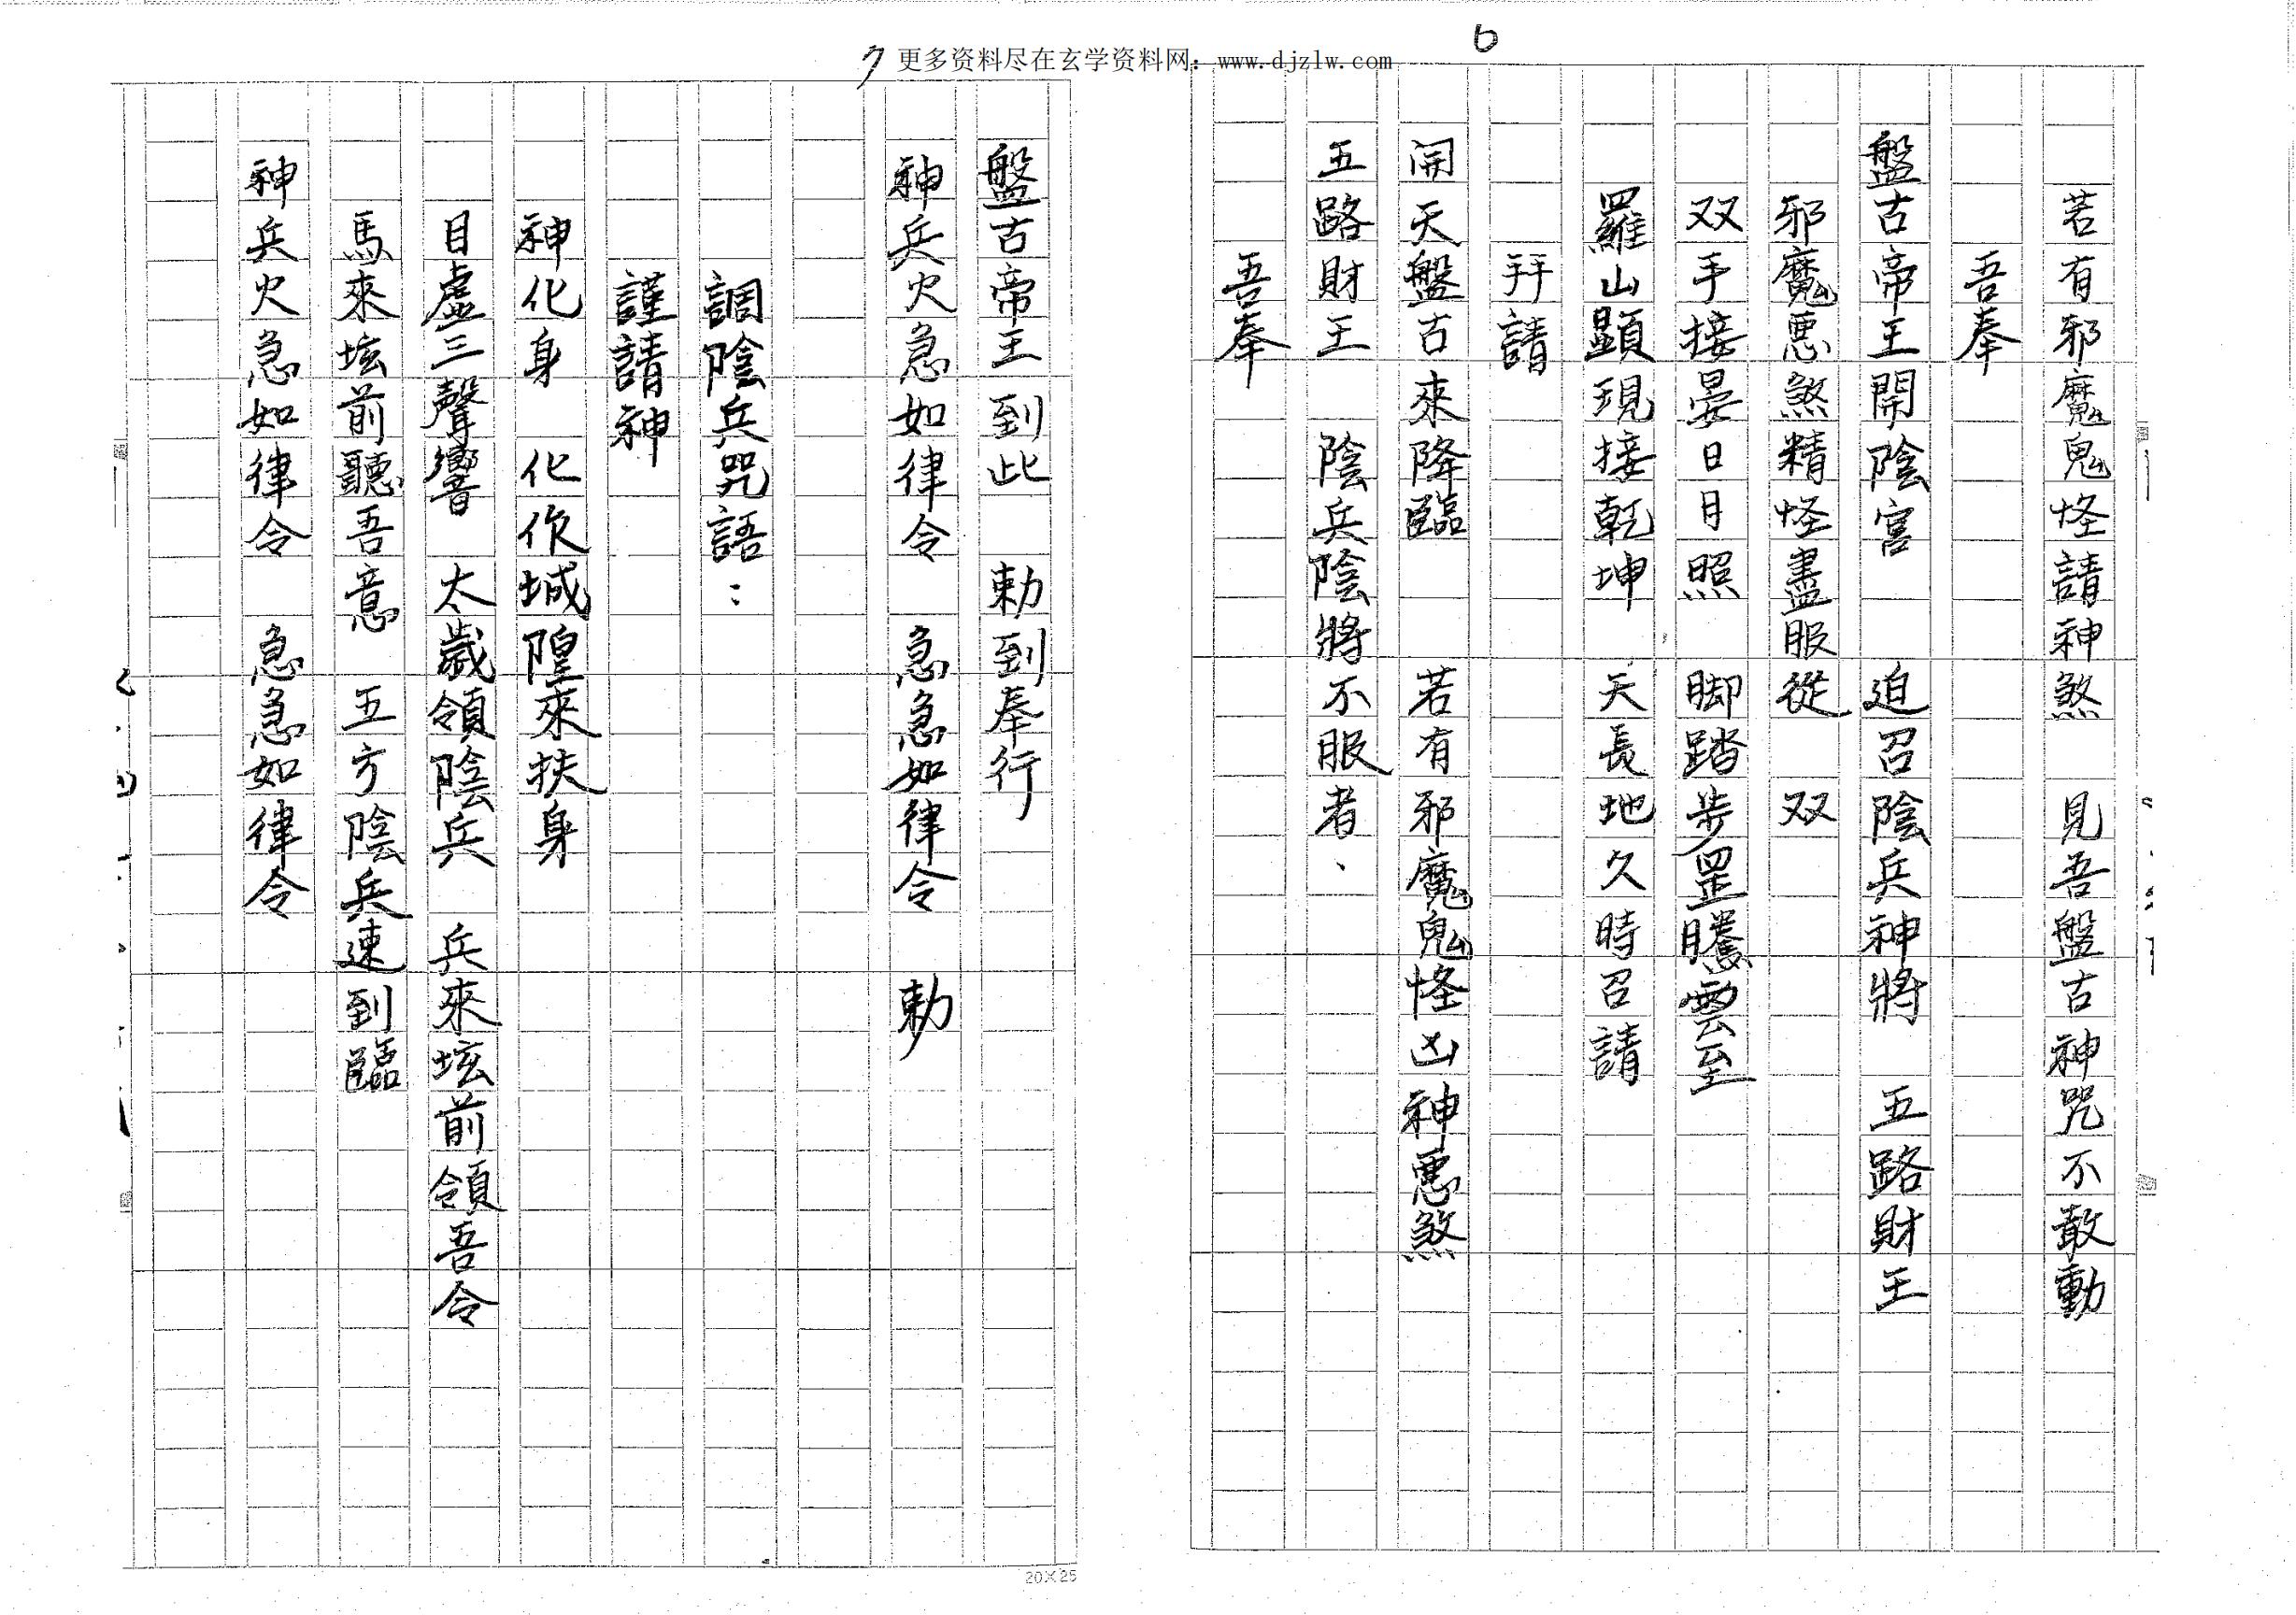 6
更多资料尽在玄学资料网：www.djzlw.com
若有邪魔鬼怪請神煞　見吾盤古神咒不敢動
吾奉
盤古帝王開陰宮　迫召陰兵神將　五路財王
邪魔惡煞精怪盡服從　双
双手接晏日月照　脚踏步罡騰雲至
羅山顯現接乾坤　天長地久時召請
拜請
開天盤古來降臨　若有邪魔鬼怪凶神惡煞
五路財王　陰兵陰將不服者、
吾奉
7
盤古帝王到此　勅到奉行
神兵火急如律令　急急如律令　勅
調陰兵咒語：
謹請神
神化身　化作城隍來扶身
目虛三聲響　太歲領陰兵　兵來坛前領吾令
馬來坛前聽吾意　五方陰兵速到臨
神兵火急如律令　急急如律令
20×25